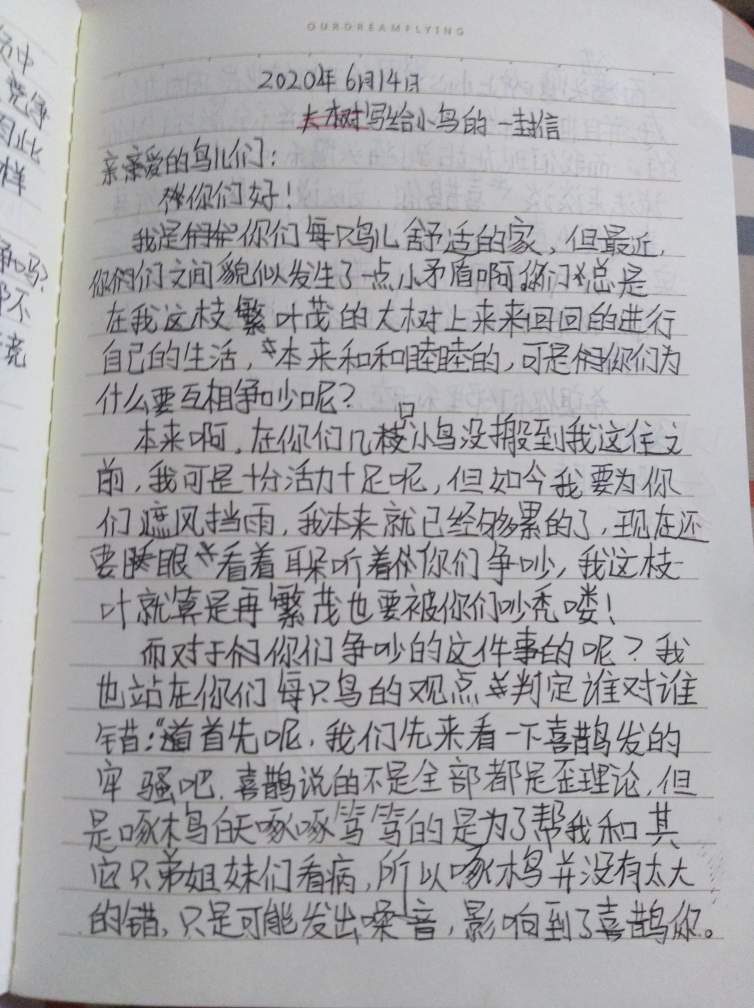 OURDREAMFLYING
2020年6月14日
大树写给小鸟的一封信
亲亲爱的鸟儿们：
你们好！
我是你们每只鸟儿舒适的家，但最近，
你们之间貌似发生了一点小矛盾啊你们总是
在我这枝繁叶茂的大树上来来回回的进行
自己的生活，本来和和睦睦的，可是你们为
什么要互相争吵呢？
本来啊，在你们几只小鸟没搬到我这住之
前，我可是十分活力十足呢，但如今我要为你
们遮风挡雨，我本来就已经够累的了，现在还
要眼看着耳听着你们争吵，我这枝
叶就算是再繁茂也要被你们吵秃喽！
而对于你们争吵的这件事的呢？我
也站在你们每只鸟的观点判定谁对谁
错："首先呢，我们先来看一下喜鹊发的
牢骚吧，喜鹊说的不是全部都是歪理论，但
是啄木鸟白天啄啄笃笃的是为了帮我和其
它兄弟姐妹们看病，所以啄木鸟并没有太大
的错，只是可能发出噪音，影响到了喜鹊你。
分中
竞争
因此
样
争吗？
不
竞